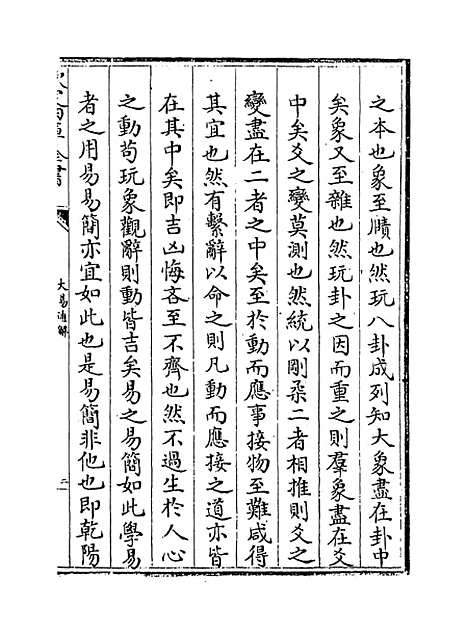 之本也象至賾也然玩八卦成列知大象盡在卦中
矣象又至雜也然玩卦之因而重之則羣象盡在爻
中矣爻之變莫測也然統以剛柔二者相推則爻之
變盡在二者之中矣至於動而應事接物至難咸得
其宜也然有繫辭以命之則凡動而應接之道亦皆
在其中矣即吉凶悔吝至不齊也然不過生於人心
之動苟玩象觀辭則動皆吉矣易之易簡如此學易
者之用易易簡亦宜如此也是易簡非他也即乾陽
全書
大易通解
二